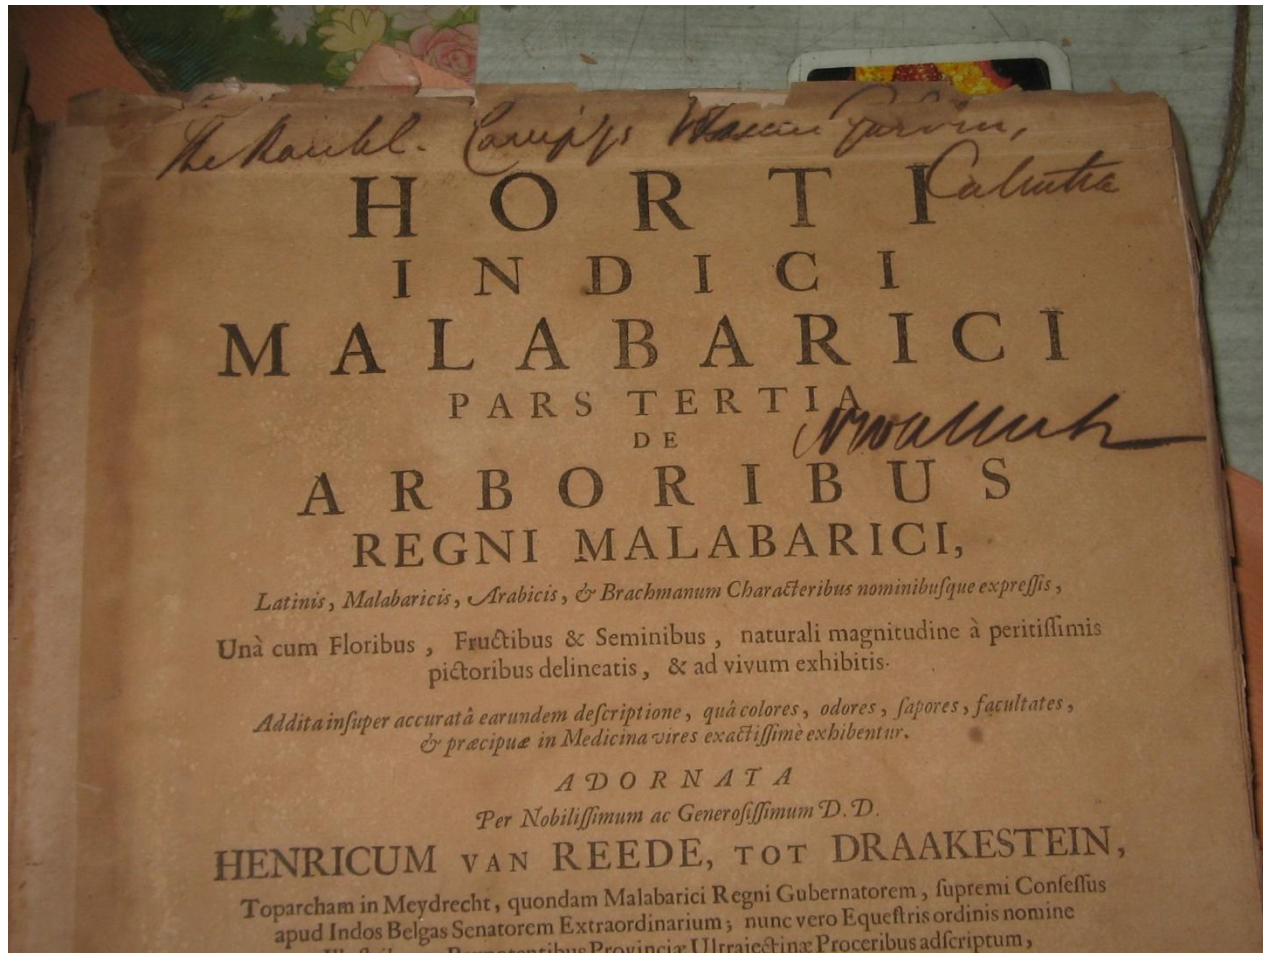 The Honbl. Comp'ys Botanic Garden,
Calcutta
HORTI
INDICI
MALABARICI
PARS TERTIA
DE
N Wallich
ARBORIBUS
REGNI MALABARICI,
Latinis, Malabaricis, Arabicis, & Brachmanum Characteribus nominibuſque expreſſis,
Unà cum Floribus, Fructibus & Seminibus, naturali magnitudine à peritiſſimis
pictoribus delineatis, & ad vivum exhibitis.
Addita inſuper accuratâ earundem deſcriptione, quâ colores, odores, ſapores, facultates,
& præcipuæ in Medicina vires exactiſſimè exhibentur.
ADORNATA
Per Nobiliſſimum ac Generoſiſſimum D.D.
HENRICUM VAN REEDE, TOT DRAAKESTEIN,
Toparcham in Meydrecht, quondam Malabarici Regni Gubernatorem, ſupremi Confeſſus
apud Indos Belgas Senatorem Extraordinarium; nunc vero Equeſtris ordinis nomine
Provinciæ Ultraiectinæ Proceribus adſcriptum,